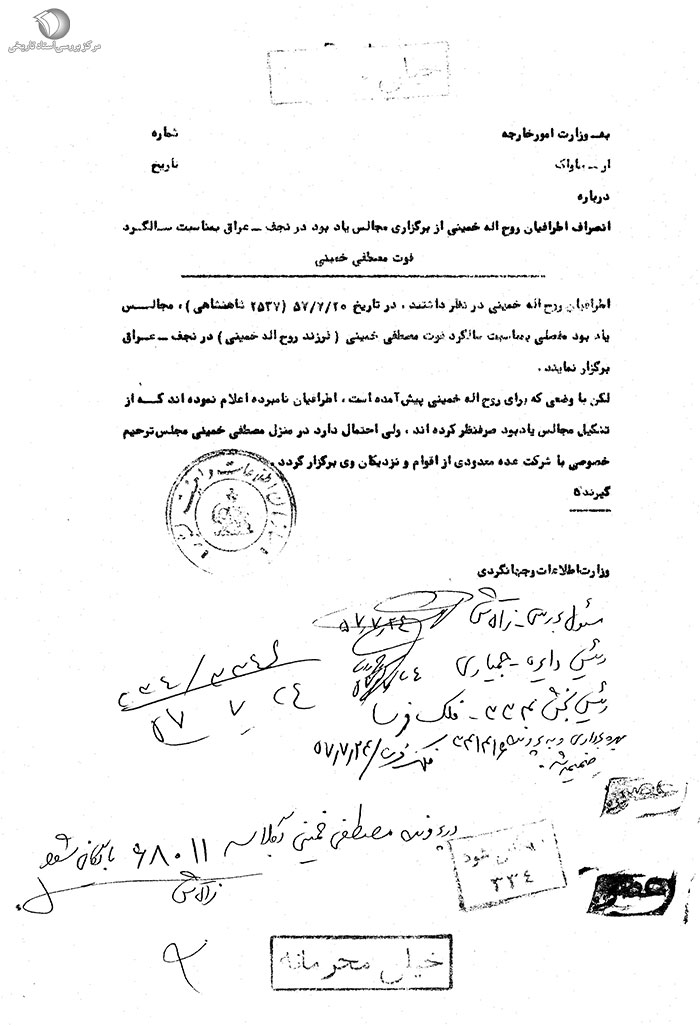 مرکز بررسی اسناد تاریخی
خیلی
به وزارت امورخارجه
شماره
از ساواک
تاریخ
درباره
انصراف اطرافیان روح اله خمینی از برگزاری مجالس یاد بود در نجف ـ عراق بمناسبت سالگرد
فوت مصطفی خمینی
اطرافیان روح اله خمینی در نظر داشتند ، در تاریخ ۵۷/۷/۲۰ (۲۵۳۷ شاهنشاهی) ، مجالس
یاد بود مفصلی بمناسبت سالگرد فوت مصطفی خمینی ( فرزند روح اله خمینی ) در نجف ـ عراق
برگزار نمایند .
لکن با وضعی که برای روح اله خمینی پیش آمده است ، اطرافیان نامبرده اعلام نموده اند که از
تشکیل مجالس یادبود صرفنظر کرده اند ، ولی احتمال دارد در منزل مصطفی خمینی مجلس ترحیم
خصوصی با شرکت عده معدودی از اقوام و نزدیکان وی برگزار گردد .
گیرنده
وزارت اطلاعات و جهانگردی
مسئول بررسی ـ
۵۷/۷/۲۴
رئیس دایره ـ
رئیس بخش ۳۳۴ ـ فلک فرسا
۳۳۴ /
۵۷ ۷ ۲۴
بهره برداری و به پرونده
ضمیمه شد .
۵۷/۷/۲۴
در پرونده مصطفی خمینی بکلاسه ۶۸۰۱۱ بایگانی شود
شود
۳۳۴
خیلی محرمانه